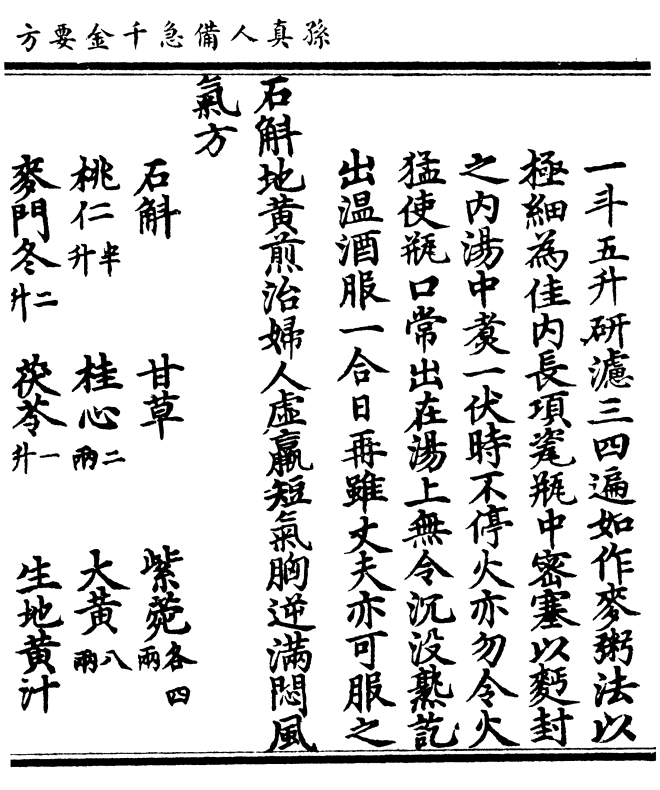 孫真人備急千金要方
一斗五升研濾三四遍如作麥粥法以
極細為佳內長項瓷瓶中密塞以麪封
之內湯中煑一伏時不停火亦勿令火
猛使瓶口常出在湯上無令沉没熟訖
出温酒服一合日再雖丈夫亦可服之
石斛地黃煎治婦人虛羸短氣胸逆滿悶風
氣方
石斛 甘草 紫菀各四兩
桃仁半升 桂心二兩 大黃八兩
麥門冬二升 茯苓一升 生地黃汁